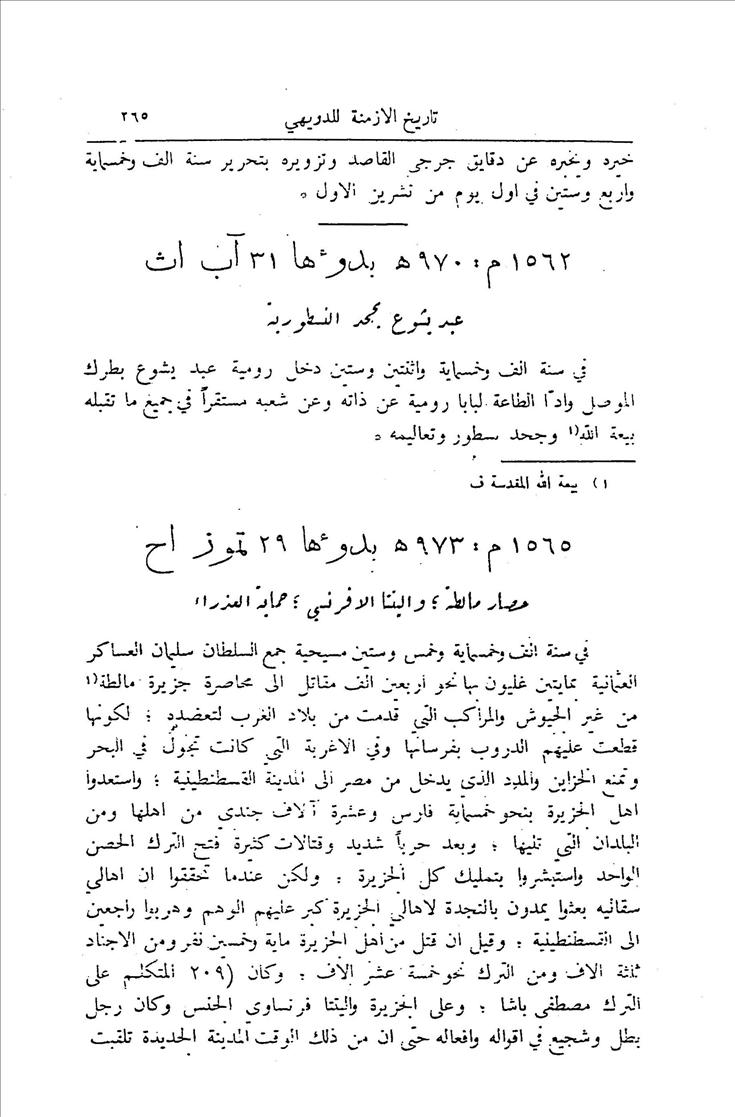 تاريخ الازمنة للدويهي ٢٦٥
خيره ونخبره عن دقايق جرجي القاصد وتزويره بتحرير سنة الف وخمسماية
واربع وستين في اول يوم من تشرين الاول *
١٥٦٢م : ٩٧٠ﻫ بدوءها ٣١ آب اث
عبد يشوع يجحد النسطورية
في سنة الف وخمسماية واثنتين وستين دخل رومية عبد يشوع بطرك
الموصل وادّا الطاعة لبابا رومية عن ذاته وعن شعبه مستقراً في جميع ما تقبله
بيعة الله(١ وجحد سطور وتعاليمه *
١) بيعة الله المقدسة ف
١٥٦٥م : ٩٧٣ﻫ بدوءها ٢٩ تموز اح
حصار مالطة ؛ والينتا الافرنسي ؛ حماية العذراء
في سنة الف وخمسماية وخمس وستين مسيحية جمع السلطان سليمان العساكر
العثمانية بمايتين غليون بها نحو اربعين الف مقاتل الى محاصرة جزيرة مالطة(١
من غير الجيوش والمراكب التي قدمت من بلاد الغرب لتعضده ؛ لكونها
قطعت عليهم الدروب بفرسانها وفي الاغربة التي كانت تجول في البحر
وتمنع الخزاين والمدد الذي يدخل من مصر الى المدينة القسطنطينية ؛ واستعدوا
اهل الجزيرة بنحو خمسماية فارس وعشرة آلاف جندي من اهلها ومن
البلدان التي تليها ؛ وبعد حرباً شديد وقتالات كثيرة فتح الترك الحصن
الواحد واستبشروا بتمليك كل الجزيرة : ولكن عندما تحققوا ان اهالي
سقاليه بعثوا يمدون بالنجدة لاهالي الجزيرة كبر عليهم الوهم وهربوا راجعين
الى القسطنطينية ؛ وقيل ان قتل من اهل الجزيرة ماية وخمسين نفر ومن الاجناد
ثلثة الاف ومن الترك نحو خمسة عشر الاف : وكان (٢٠٩ المتكلم على
الترك مصطفى باشا ؛ وعلى الجزيرة والينتا فرنساوي الجنس وكان رجل
بطل وشجيع في اقواله وافعاله حتى ان من ذلك الوقت المدينة الجديدة تلقبت